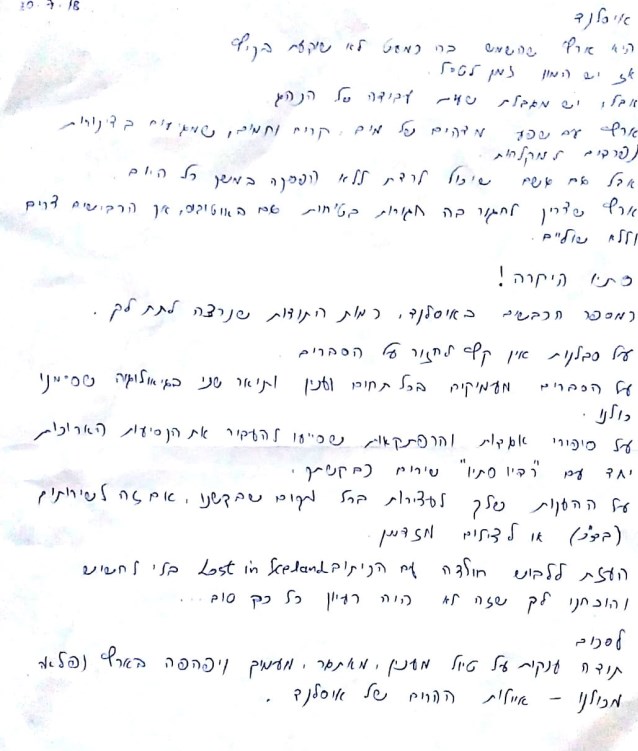 30.7.18
איסלנד
היא ארץ שהשמש בה כמעט לא שוקעת בקיץ
אז יש המון זמן לטייל.
אבל, יש מגבלת שעות עבודה של הנהג
ארץ עם שפע מדהים של מים, קרים וחמים, שמגיעים בצינורות
נפרדים למקלחות.
אבל גם גשם שיכול לרדת ללא הפסקה במשך כל היום.
ארץ שצריך לחגור בה חגורות בטיחות גם באוטובוס, אך הכבישים צרים
וללא שוליים.
סתיו היקרה!
כמספר הכבשים באיסלנד, כמות התודות שנרצה לתת לך.
על סבלנות אין קץ לחזור על הסברים
על הסברים מעמיקים בכל תחום ועניין ותואר שני בגיאולוגיה שסיימנו
כולנו.
על סיפורי אגדות והרפתקאות שסייעו להעביר את הנסיעות הארוכות
יחד עם "רדיו סתיו" שירים כבקשתך.
על ההענות שלך לעצירות בכל מקום שבקשנו, אם זה לשירותים
או לצילום מזדמן
העזת ללבוש חולצה עם הכיתוב Lost in Iceland בלי לחשוש
והוכחנו לך שזה לא היה רעיון כל כך טוב...
לסכום
תודה ענקית על טיול מעניין, מאתגר, מעמיק ויפהפה בארץ נפלאה
מכולנו – איילות ההרים של איסלנד.